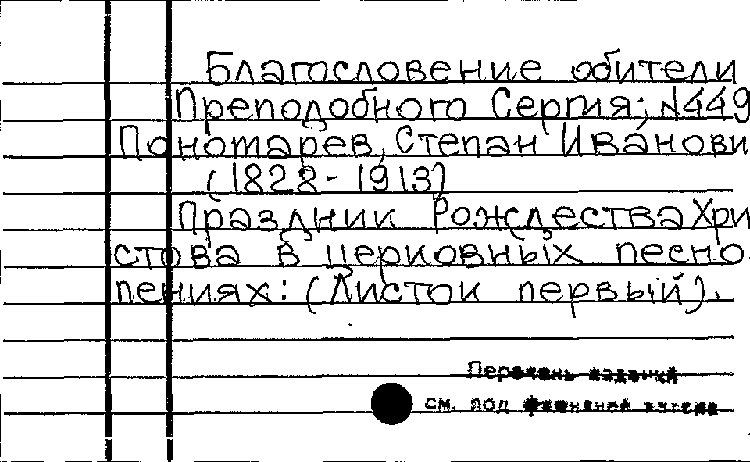 Благословение обители
Преподобного Сергия; №449
Пономарев, Степан Иванови
(1828-1913)
Праздник Рождества Хри
стова в церковных песно
пениях: (Листок первый).
Перечень изданий
см. под фамилией автора